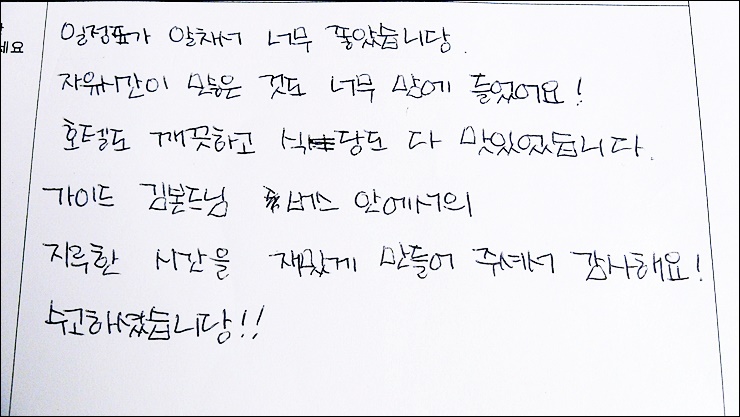 세요
일정표가 알차서 너무 좋았습니당.
자유시간이 많은 것도 너무 맘에 들었어요!
호텔도 깨끗하고 식당도 다 맛있었습니다.
가이드 김본드님 버스 안에서의
지루한 시간을 재밌게 만들어 주셔서 감사해요!
수고하셨습니당!!